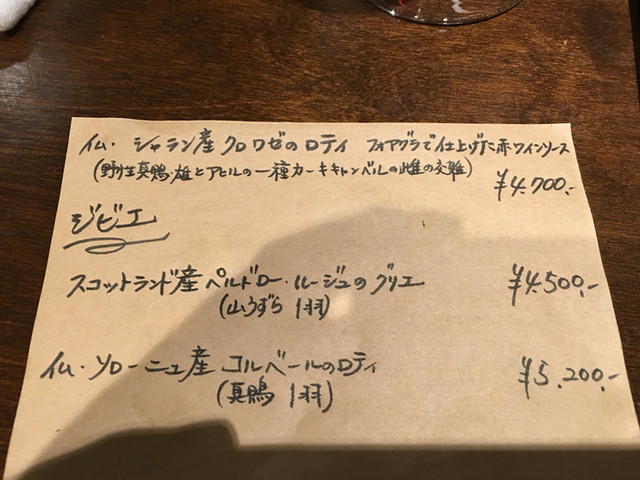 仏・シャラン産 クロワゼのロティ フォアグラで仕上げた赤ワインソース
(野生真鴨・雄とアヒルの一種カーキキャンベルの雌の交雑)
¥4,700.-
ジビエ
スコットランド産ペルドロー・ルージュのグリエ ¥4,500.-
(山うずら 1羽)
仏・ソローニュ産 コルベールのロティ ¥5,200.-
(真鴨 1羽)